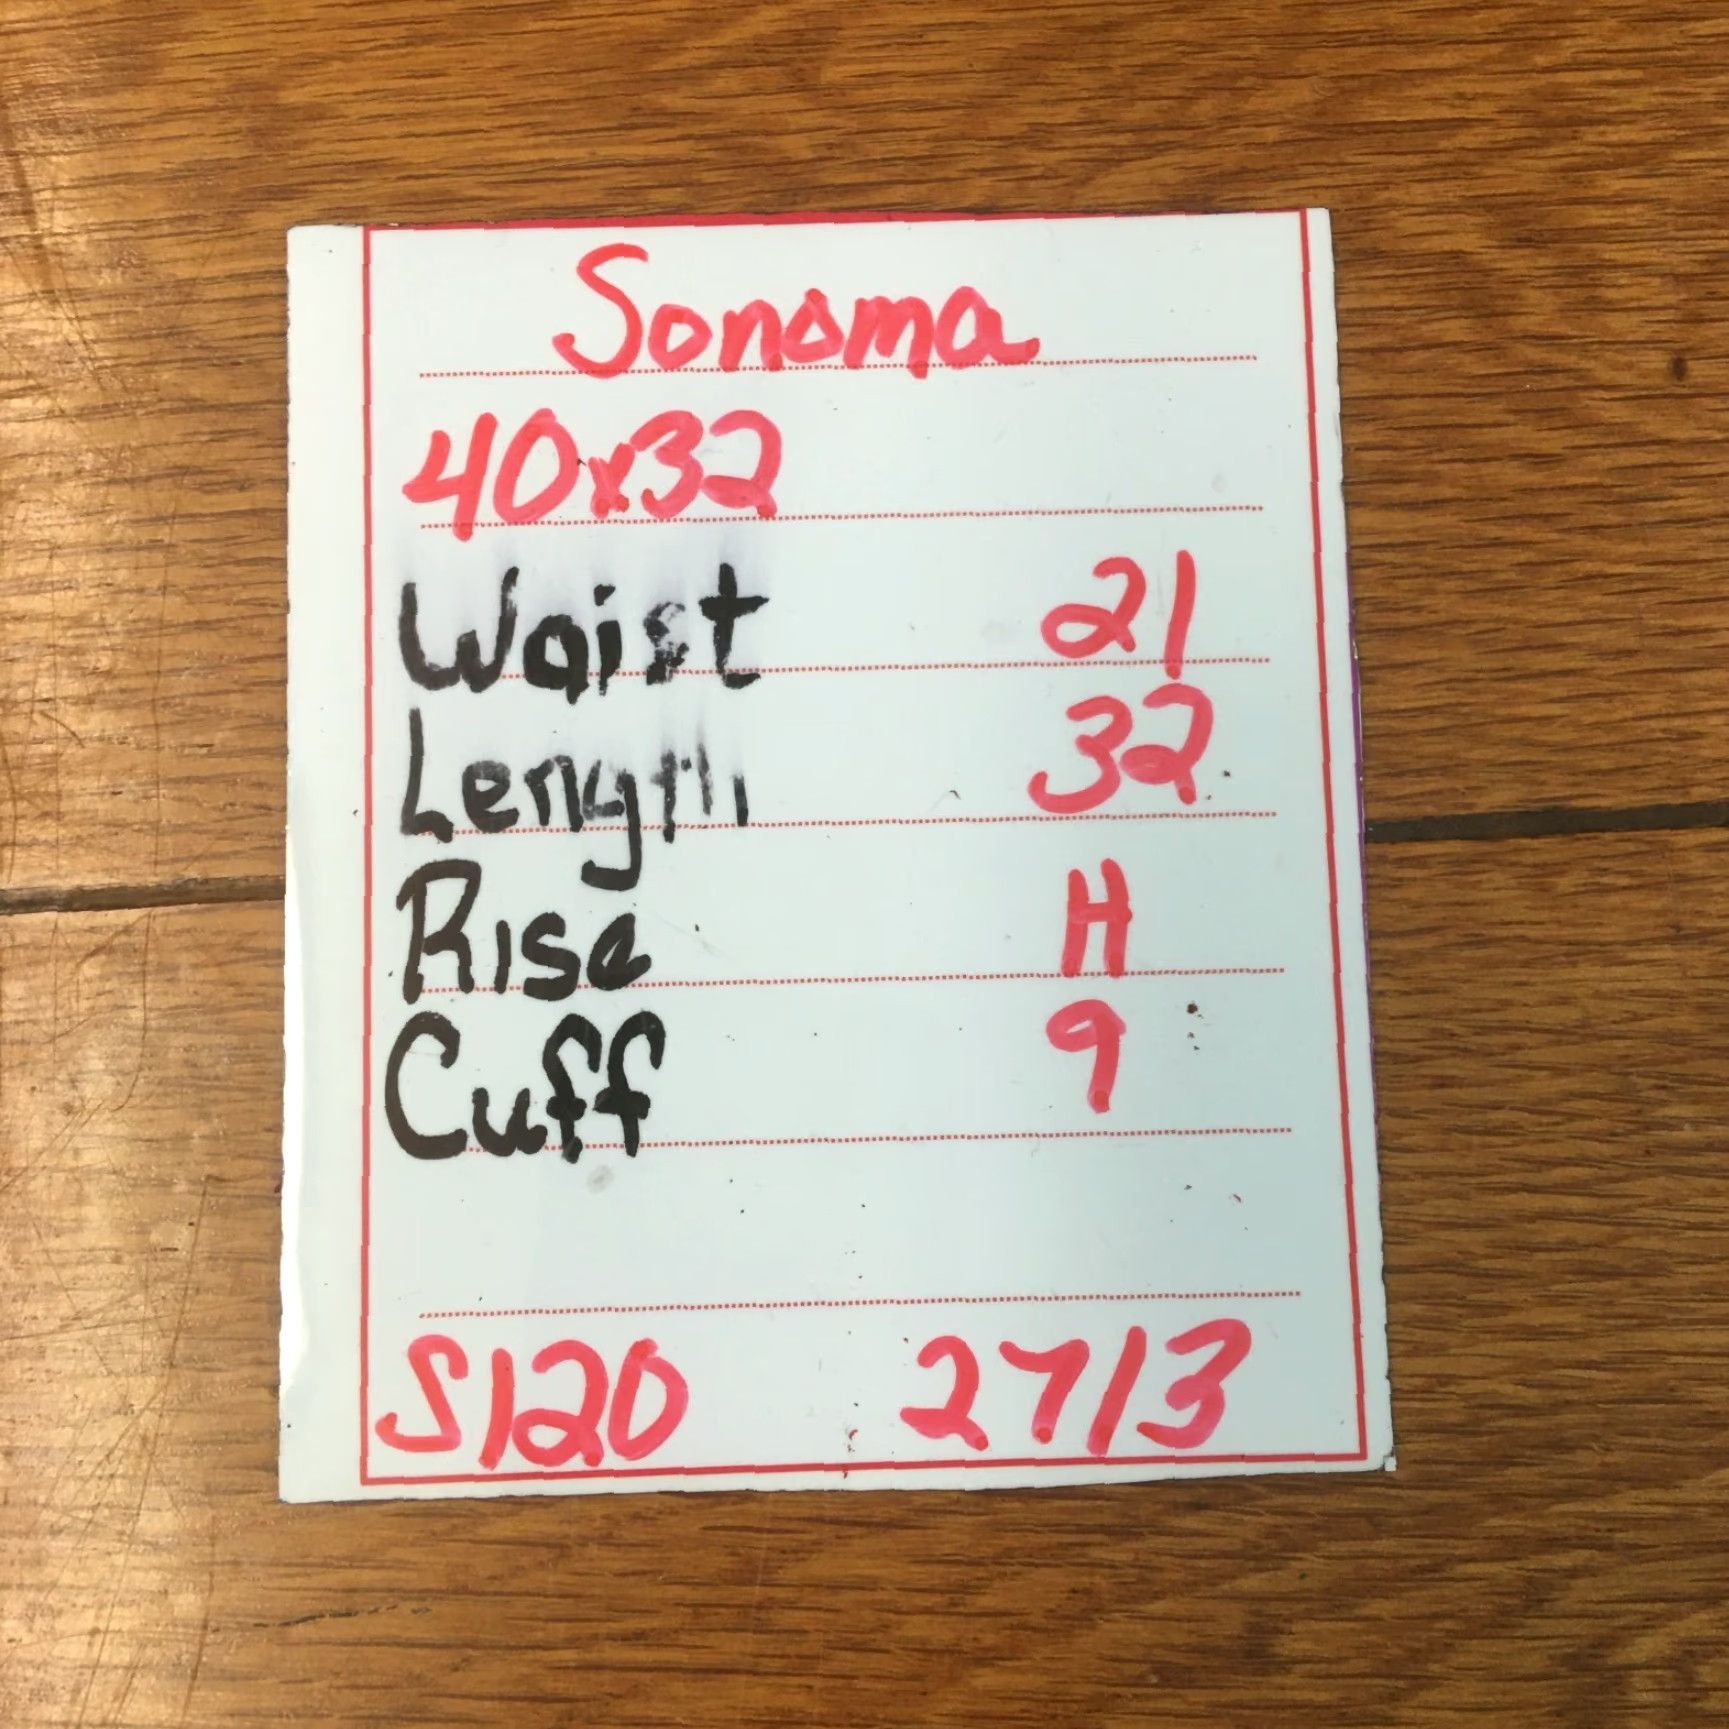 Sonoma
40x32
Waist 21
Length 32
Rise H
Cuff 9
S120 2713